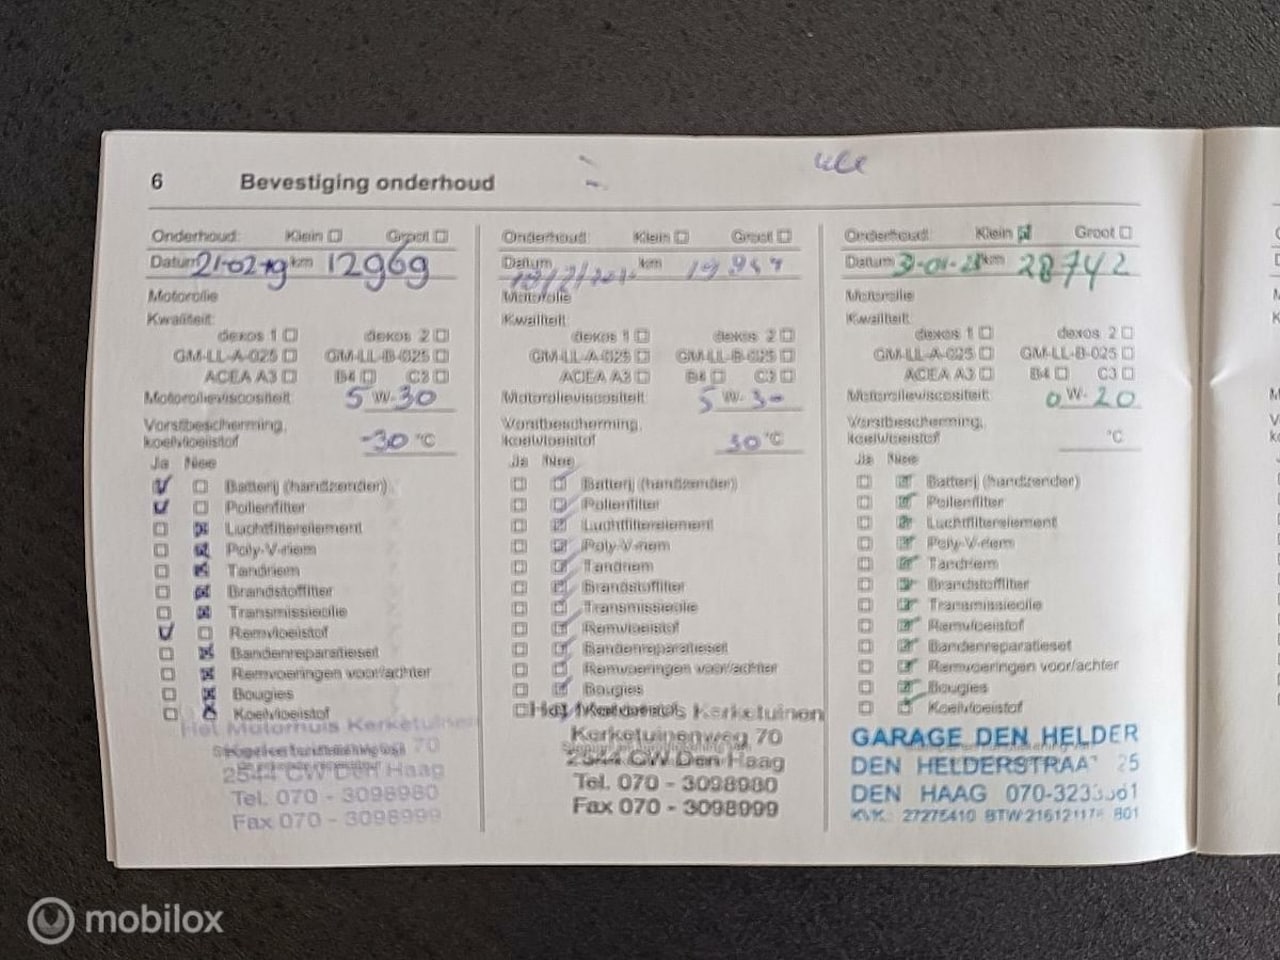 6 Bevestiging onderhoud
Onderhoud: Klein Groot
Datum 21-02-19 km 12969
Motorolie
Kwaliteit:
dexos 1 dexos 2
GM-LL-A-025 GM-LL-B-025
ACEA A3 B4 C3
Motorolieviscositeit: 5 W- 30
Vorstbescherming,
koelvloeistof -30 °C
Ja Nee
Batterij (handzender)
Pollenfilter
Luchtfilterelement
Poly-V-riem
Tandriem
Brandstoffilter
Transmissieolie
Remvloeistof
Bandenreparatieset
Remvoeringen voor/achter
Bougies
Koelvloeistof
Het Motorhuis Kerketuinen
Kerketuinenweg 70
2544 CW Den Haag
Tel. 070 - 3098980
Fax 070 - 3098999
Onderhoud: Klein Groot
Datum km
Motorolie
Kwaliteit:
dexos 1 dexos 2
GM-LL-A-025 GM-LL-B-025
ACEA A3 B4 C3
Motorolieviscositeit: 5 W- 30
Vorstbescherming,
koelvloeistof 30 °C
Ja Nee
Batterij (handzender)
Pollenfilter
Luchtfilterelement
Poly-V-riem
Tandriem
Brandstoffilter
Transmissieolie
Remvloeistof
Bandenreparatieset
Remvoeringen voor/achter
Bougies
Koelvloeistof
Het Motorhuis Kerketuinen
Kerketuinenweg 70
2544 CW Den Haag
Tel. 070 - 3098980
Fax 070 - 3098999
Onderhoud: Klein Groot
Datum km 28742
Motorolie
Kwaliteit:
dexos 1 dexos 2
GM-LL-A-025 GM-LL-B-025
ACEA A3 B4 C3
Motorolieviscositeit: 0 W- 20
Vorstbescherming,
koelvloeistof °C
Ja Nee
Batterij (handzender)
Pollenfilter
Luchtfilterelement
Poly-V-riem
Tandriem
Brandstoffilter
Transmissieolie
Remvloeistof
Bandenreparatieset
Remvoeringen voor/achter
Bougies
Koelvloeistof
GARAGE DEN HELDER
DEN HELDERSTRAAT 25
DEN HAAG
KVK: 27275410 BTW
mobilox